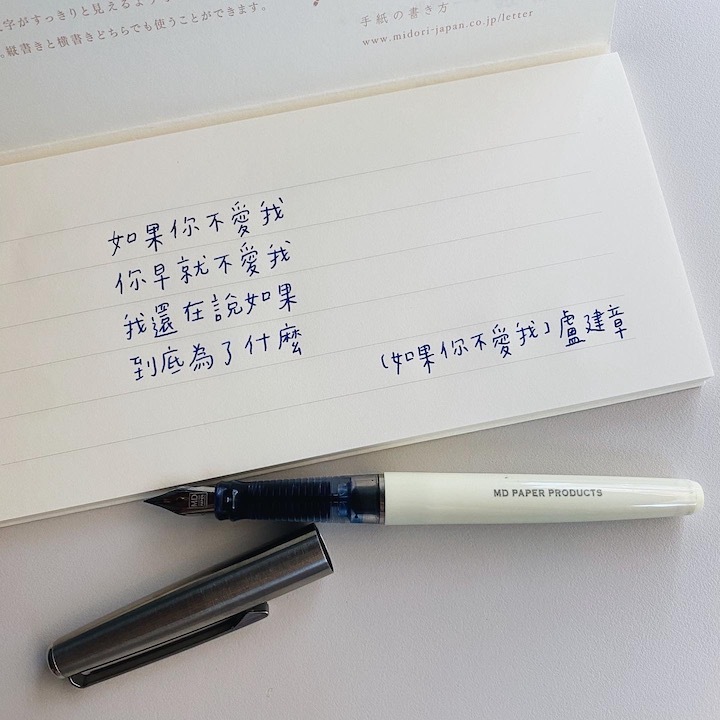 字がすっきりと見えるよう
縦書きと横書きどちらでも使うことができます。
手紙の書き方
www.midori-japan.co.jp/letter
如果你不愛我
你早就不愛我
我還在說如果
到底為了什麼
(如果你不愛我」盧建章
MD
MD PAPER PRODUCTS